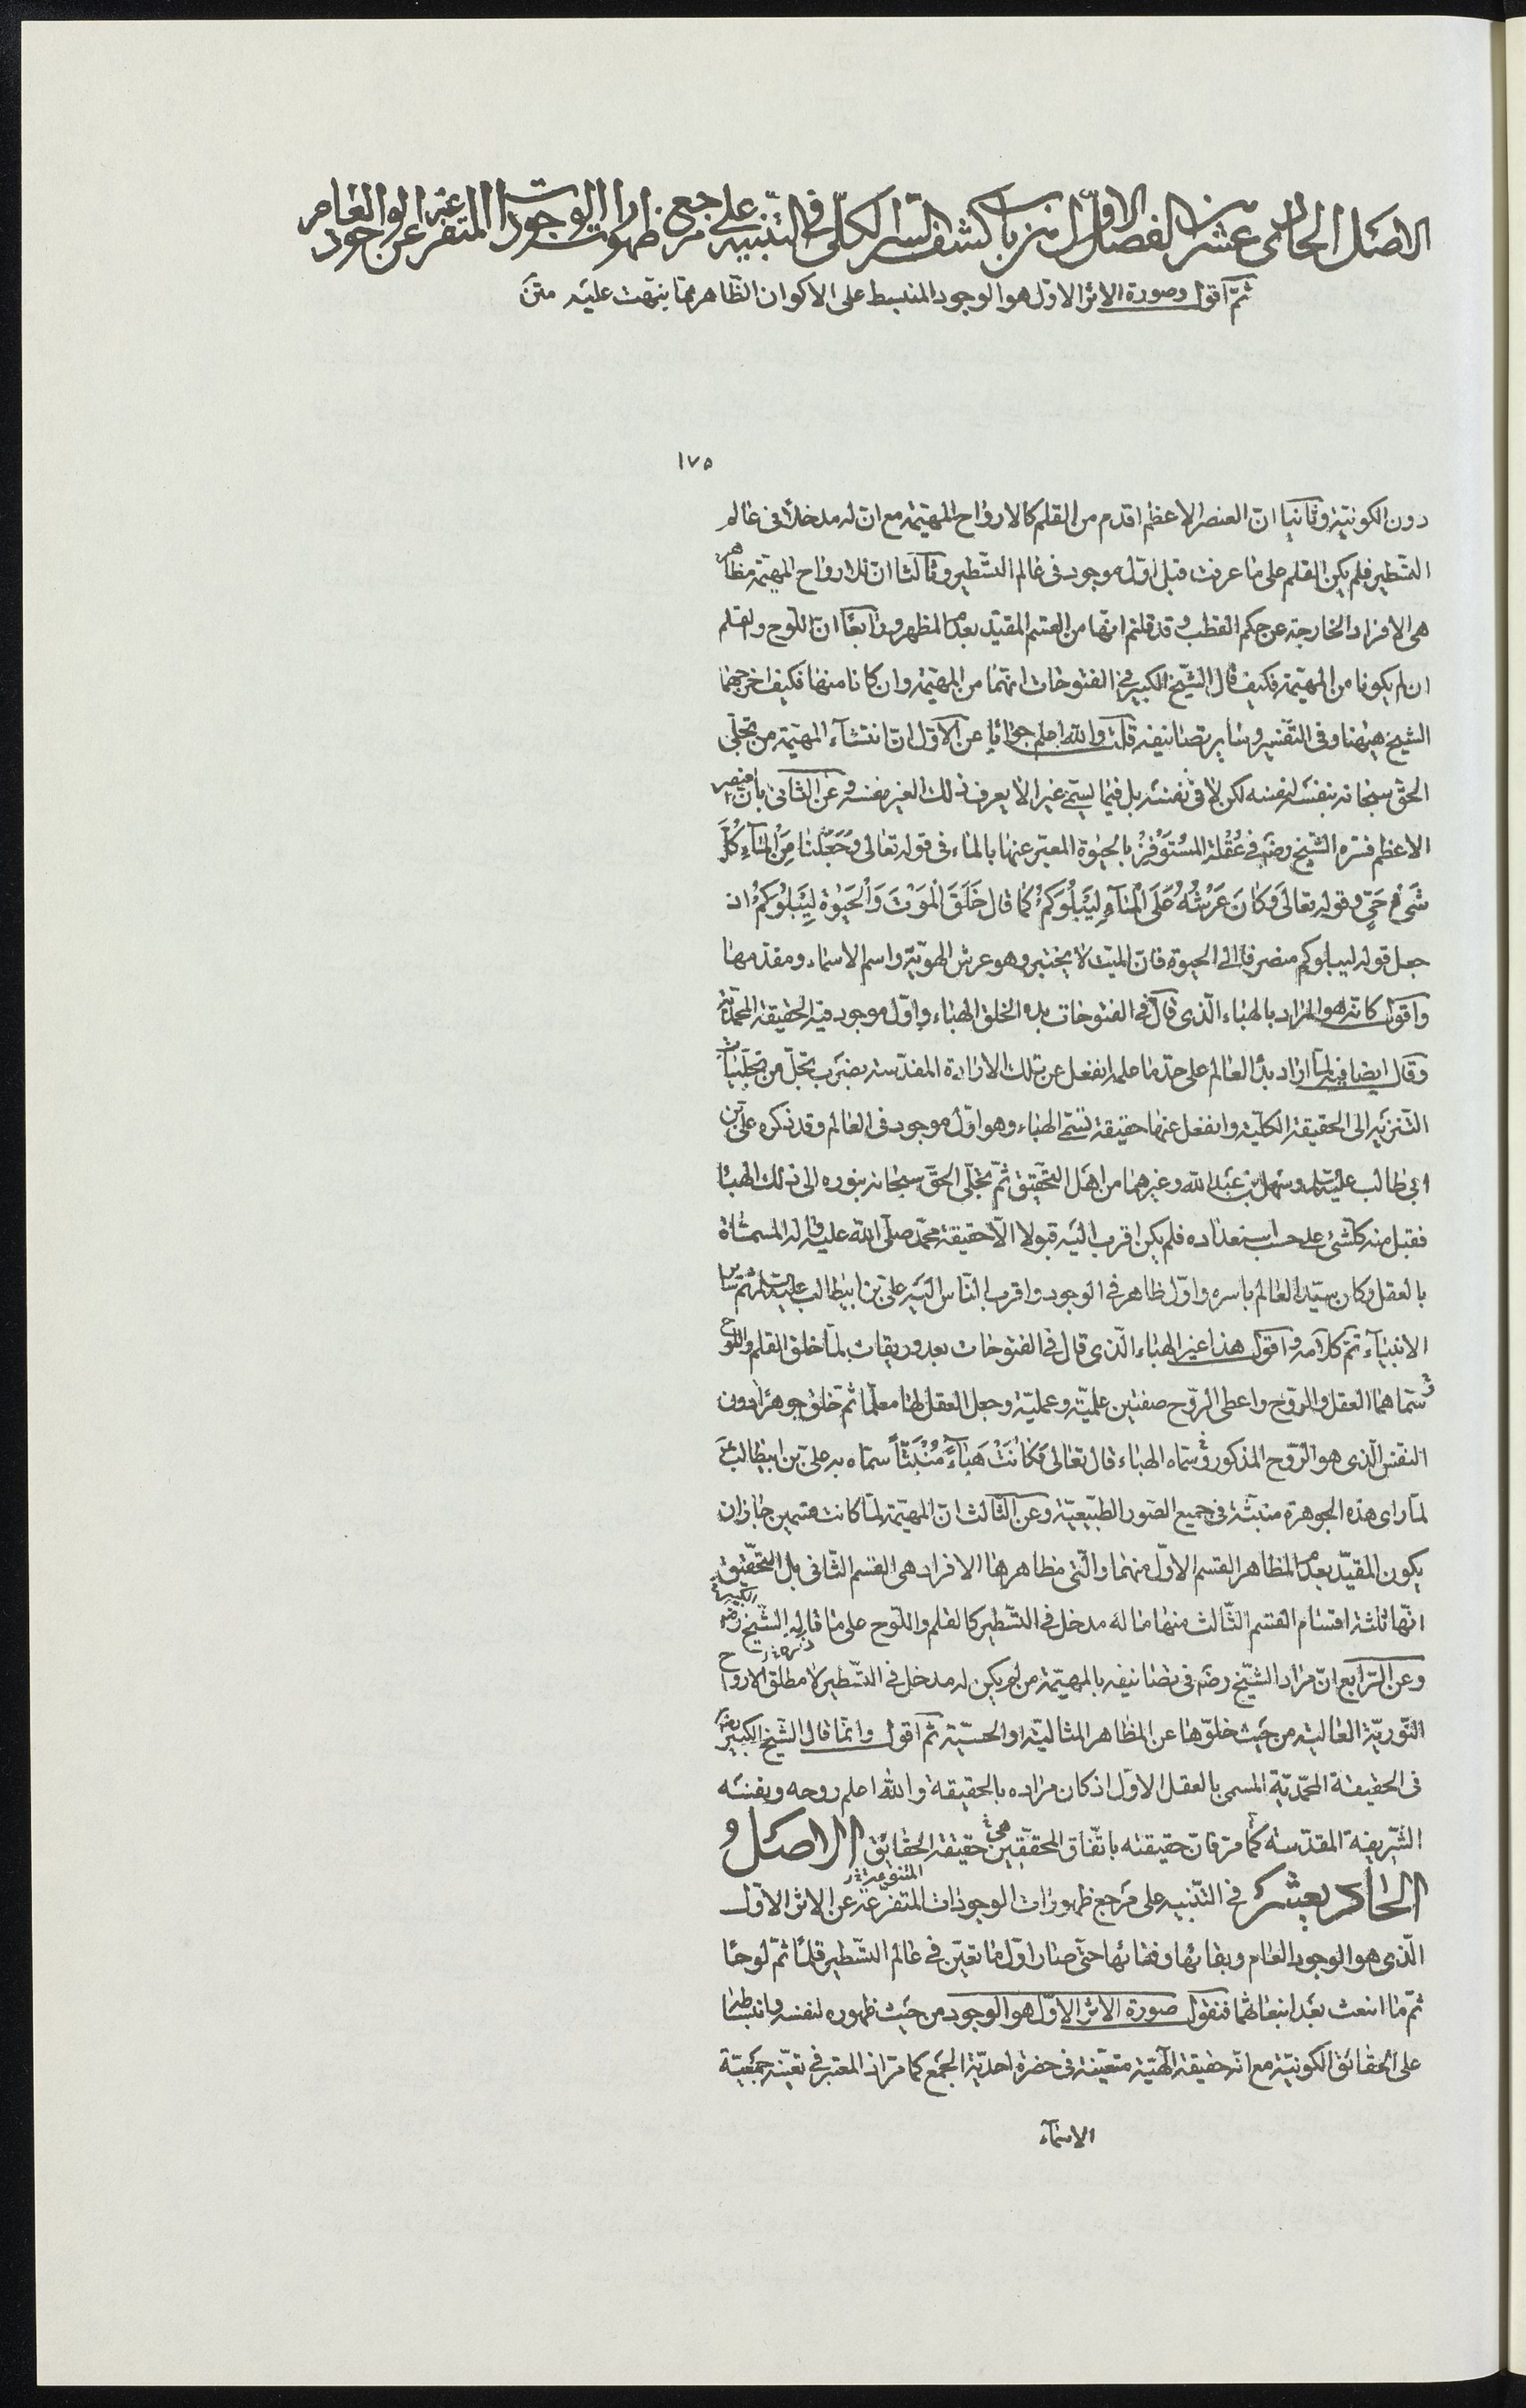 الاصل الحادى عشر من الفصل الاول من باب كشف السر الكلى فى التنبيه على مرجع ظهورات الوجودات المتفرعة عن الوجود العام
ثمّ اقول وصورة الاثر الاوّل هو الوجود المنبسط على الاكوان الظّاهر ممّا نبّهت عليه متن
١٧٥
دون الكونيّة وثانيا انّ العنصر الاعظم اقدم من القلم كالارواح المهيّمة مع انّ له مدخلاً فى عالم
التسّطير فلم يكن القلم على ما عرفت قبل اوّل موجود فى عالم التسّطير وثالثا انّ للارواح المهيّمة مظاهر
هى الافراد الخارجة عن حكم القطب وقد قلتم انّها من القسم المقيّد بعدم المظهر ورابعًا انّ اللّوح والقلم
ان لم يكونا من المهيّمة فكيف قال الشّيخ الكبير فى الفتوحات انّهما من المهيّمة وان كانا منها فكيف اخرجهما
الشيخ هيهنا وفى التّفسير وساير تصانيفه قلت والله اعلم جوابًا عن الاوّل انّ انتشآء المهيّمة من تجلّى
الحق سبحانه بنفسه لنفسه لكن لا فى نفسه بل فيما يسمّى غيرا لا يعرف ذلك الغير نفسه وعن الثّانى بانّ العنصر
الاعظم فسّره الشّيخ رضه فى عُقْلة المُسْتَوْفِزْ بالحيٰوة المعبّر عنها بالماء فى قوله تعالى وَجَعَلْنا مِنَ الْمآءِ كُلَّ
شَىْءٍ حَىٍّ وقوله تعالى وَكانَ عَرْشُهُ عَلَى الْمآءِ لِيَبْلُوَكُمْ كما قال خَلَقَ الْمَوْتَ وَالْحَيٰوةَ لِيَبْلُوَكُمْ اذ
جعل قوله ليبلوكم منصرفًا الى الحيوة فانّ الميّت لا يختبر وهو عرش الهويّة واسم الاسماء ومقدّمها
واقول كانّه هو المراد بالهباء الّذى قال فى الفتوحات بدء الخلق الهباء واوّل موجود فيه الحقيقة المحمّديّة
وقال ايضا فيه لمّا اراد بدأ العالم على حدّ ما علمه انفعل عن تلك الارادة المقدّسة بضرب تجلّ من تجلّيات
التّنزيه الى الحقيقة الكلّيّة وانفعل عنها حقيقة تسمّى الهباء وهو اوّل موجود فى العالم وقد ذكره علىّ بن
ابى طالب عليه السلام وسهل بن عبد الله وغيرهما من اهل التّحقيق ثمّ تجلّى الحقّ سبحانه بنوره الى ذلك الهبا
فقبل منه كلّ شئ على حسب استعداده فلم يكن اقرب اليه قبولا الّا حقيقة محمّد صلّى الله عليه وآله المسمّاة
بالعقل وكان سيّد العالم باسره واوّل ظاهر فى الوجود واقرب النّاس اليه علىّ بن ابيطالب عليه السلام ثمّ سائر
الانبيآء تمّ كلامه واقول هذا غير الهباء الّذى قال فى الفتوحات بعد وريقات لمّا خلق القلم واللّوح
و سمّاهما العقل والرّوح واعطى الرّوح صفتين علميّة وعمليّة وجعل العقل لها معلّما ثمّ خلق جوهرًا دون
النّفس الّذى هو الرّوح المذكور وسمّاه الهباء قال تعالى فَكانَتْ هَبآءً مُنْبَثّاً سمّاه به علىّ بن ابيطالب ع
لمّا راى هذه الجوهرة منبثّة فى جميع الصّور الطّبيعيّة وعن الثّالث انّ المهيّمة لمّا كانت قسمين جاز ان
يكون المقيّد بعدم المظاهر القسم الاوّل منهما والّتى مظاهرها الافراد هى القسم الثّانى بل التّحقيق
انّها ثلثة اقسام القسم الثّالث منها ما له مدخل فى التسّطير كالقلم واللّوح على ما قاله الشّيخ الكبير رضه
وعن الرّابع انّ مراد الشّيخ رضه فى تصانيفه بالمهيّمة من لم يكن له مدخل فى التسّطير لا مطلق الارواح
النّوريّة العالية من حيث خلوّها عن المظاهر المثاليّة او الحسّيّة ثمّ اقول وانّما قال الشّيخ الكبير رضه
فى الحقيقة المحمّديّة المسمى بالعقل الاوّل اذ كان مراده بالحقيقة والله اعلم روحه ونفسه
الشّريفة المقدّسة كما مرّ فانّ حقيقته باتّفاق المحقّقين هى حقيقة الحقائق الاصل
الحادى عشر فى التّنبيه على مرجع ظهورات الوجودات المتفرعة المتنوعة عن الاثر الاوّل
الّذى هو الوجود العام وبقائها وفنائها حتّى صار اوّل ما تعيّن فى عالم التسّطير قلمًا ثمّ لوحًا
ثمّ ما انبعث بعد انبعاثهما فنقول صورة الاثر الاوّل هو الوجود من حيث ظهوره لنفسه وانبساطه
على الحقائق الكونيّة مع انّه حقيقة الٓهيّة متعيّنة فى حضرة احديّة الجمع كما مرّ اذ المعتبر فى تعيّنه جمعيّة
الاسمآء